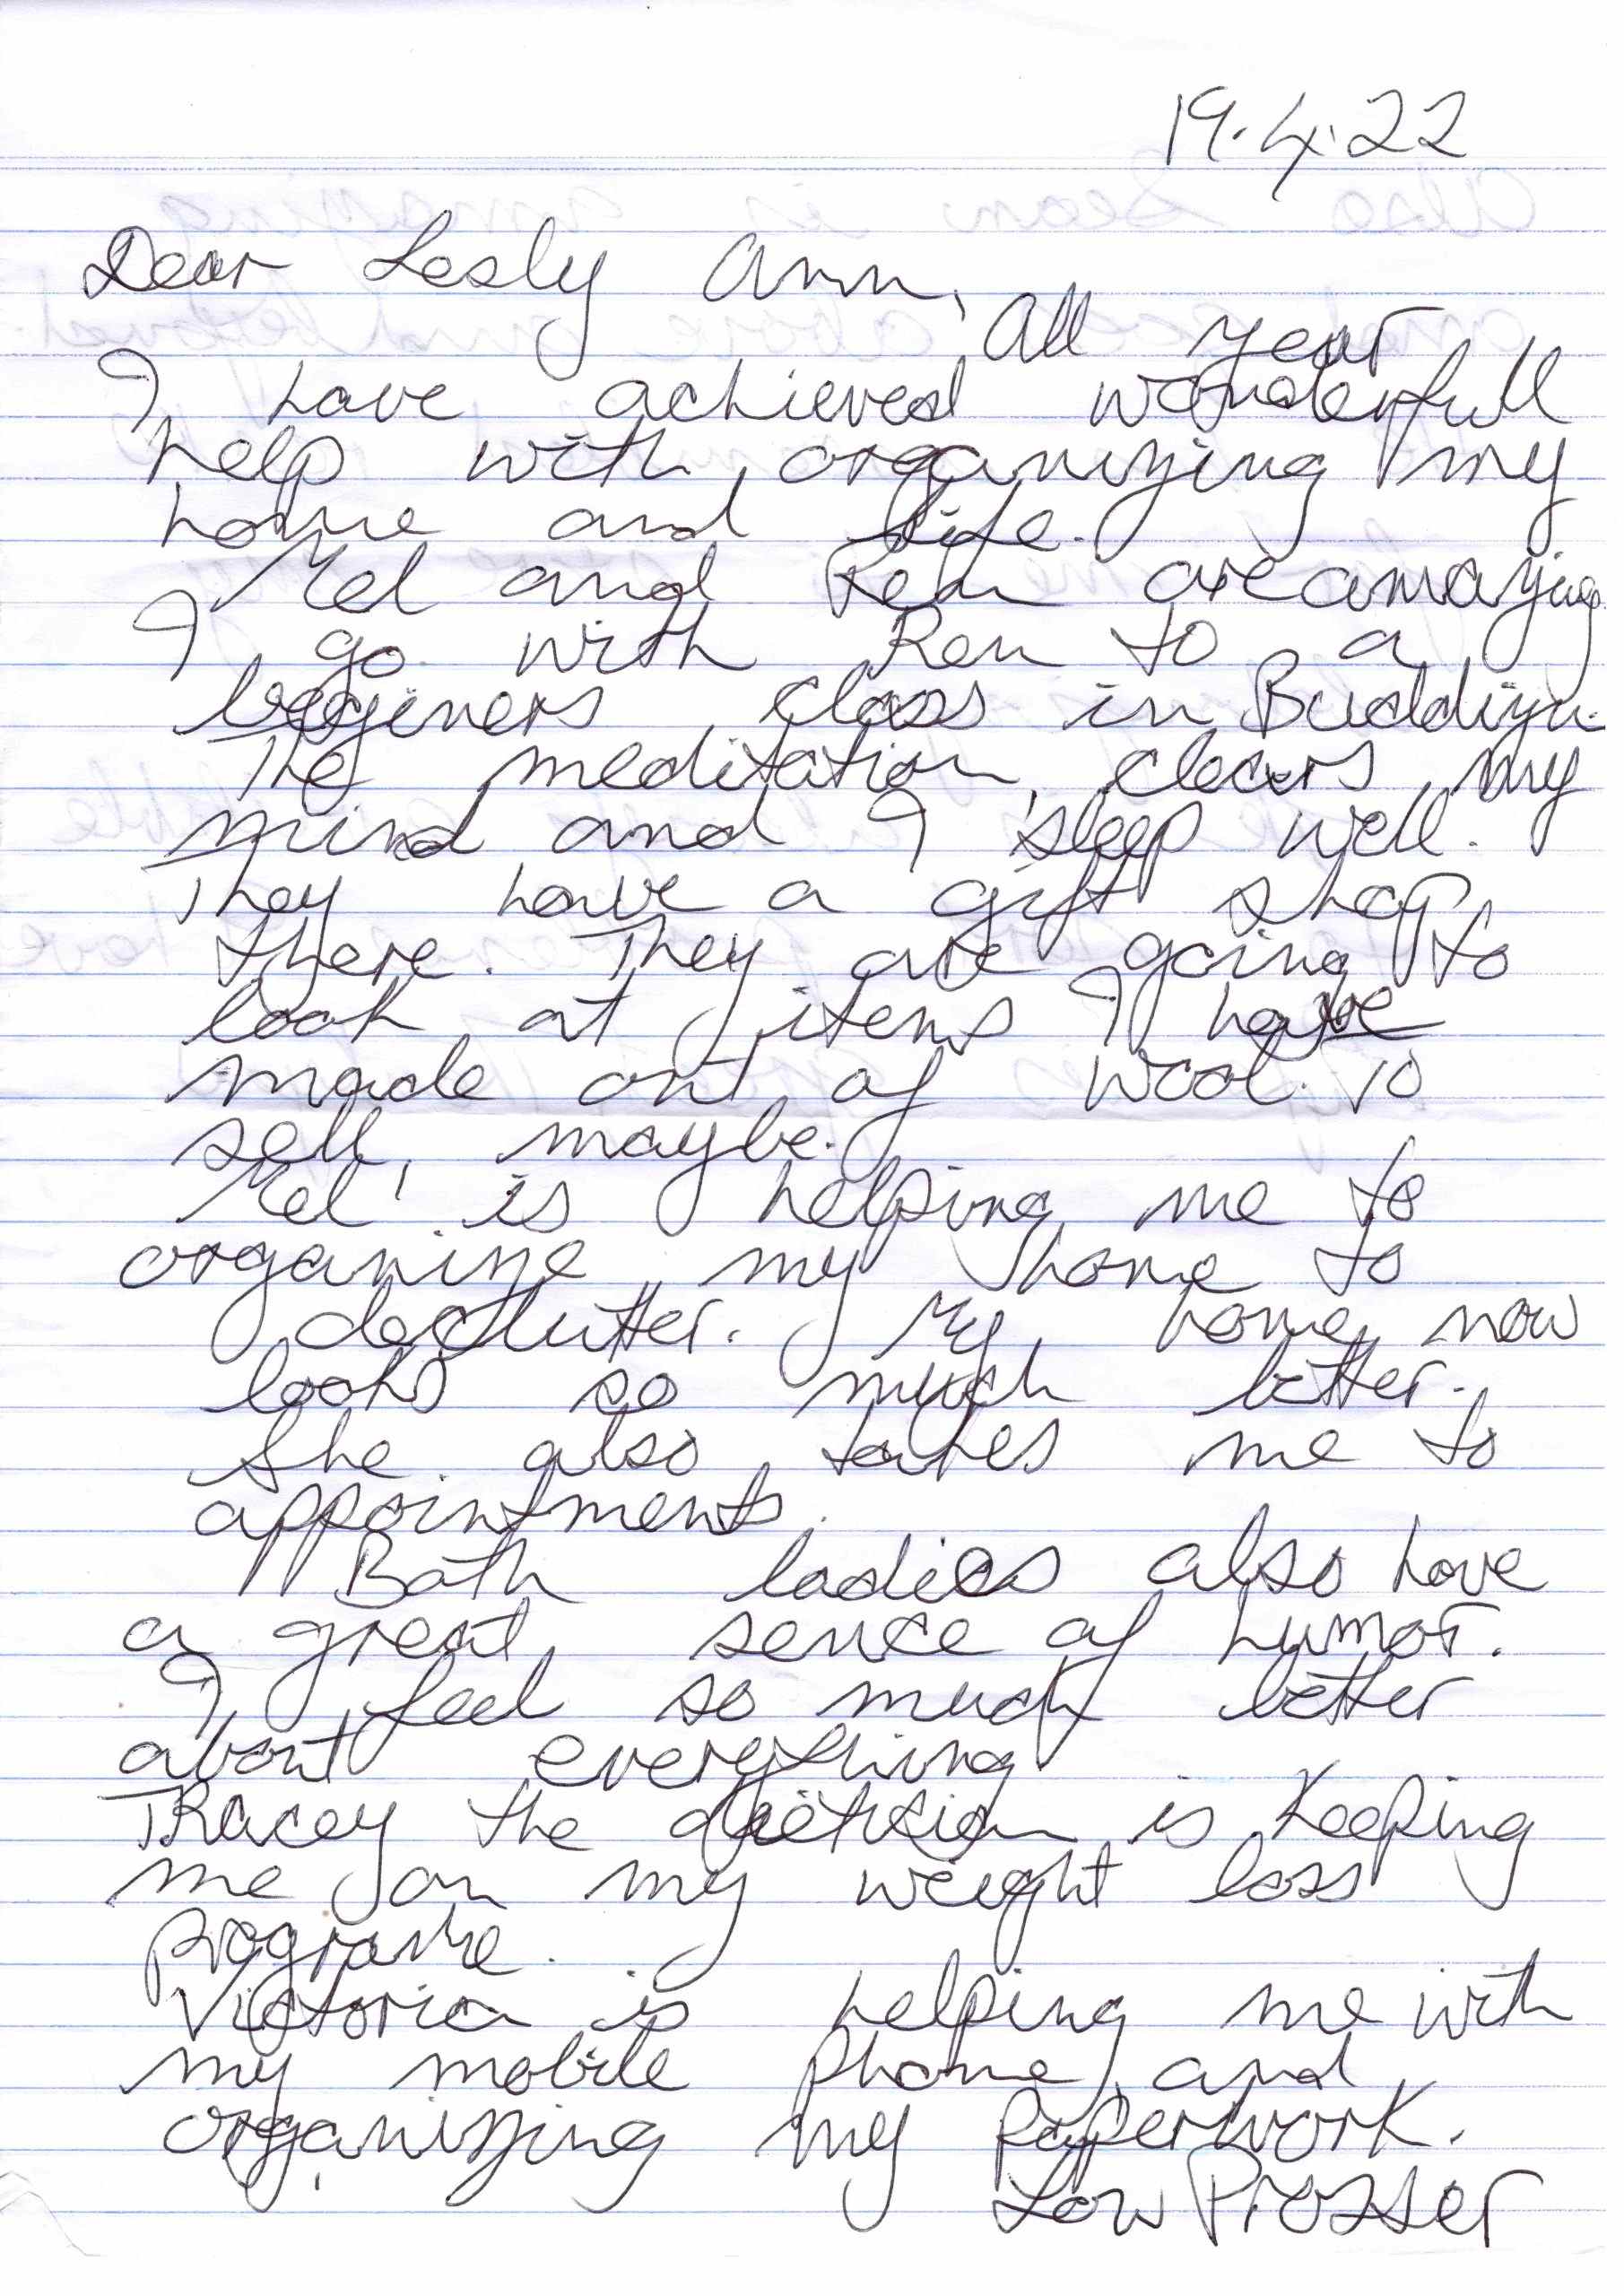 19.4.22
Dear Lesly Ann,
All year
I have achieved wonderfull
help with organizing my
home and life.
Mel and Ren are amazing
I go with Ren to a
beginers class in Buddizm.
The meditation clears my
mind and I sleep well.
They have a gift shop
there. They are going to
look at items I have
made out of wool to
sell, maybe.
Mel is helping me to
organize my home to
declutter. My home now
looks so much better.
She also takes me to
appointments.
Both ladies also have
a great sence of humor.
I feel so much better
about everything
Tracey the dietician is keeping
me on my weight loss
programe.
Victoria is helping me with
my mobile phone and
organizing my paperwork.
Low Prosser